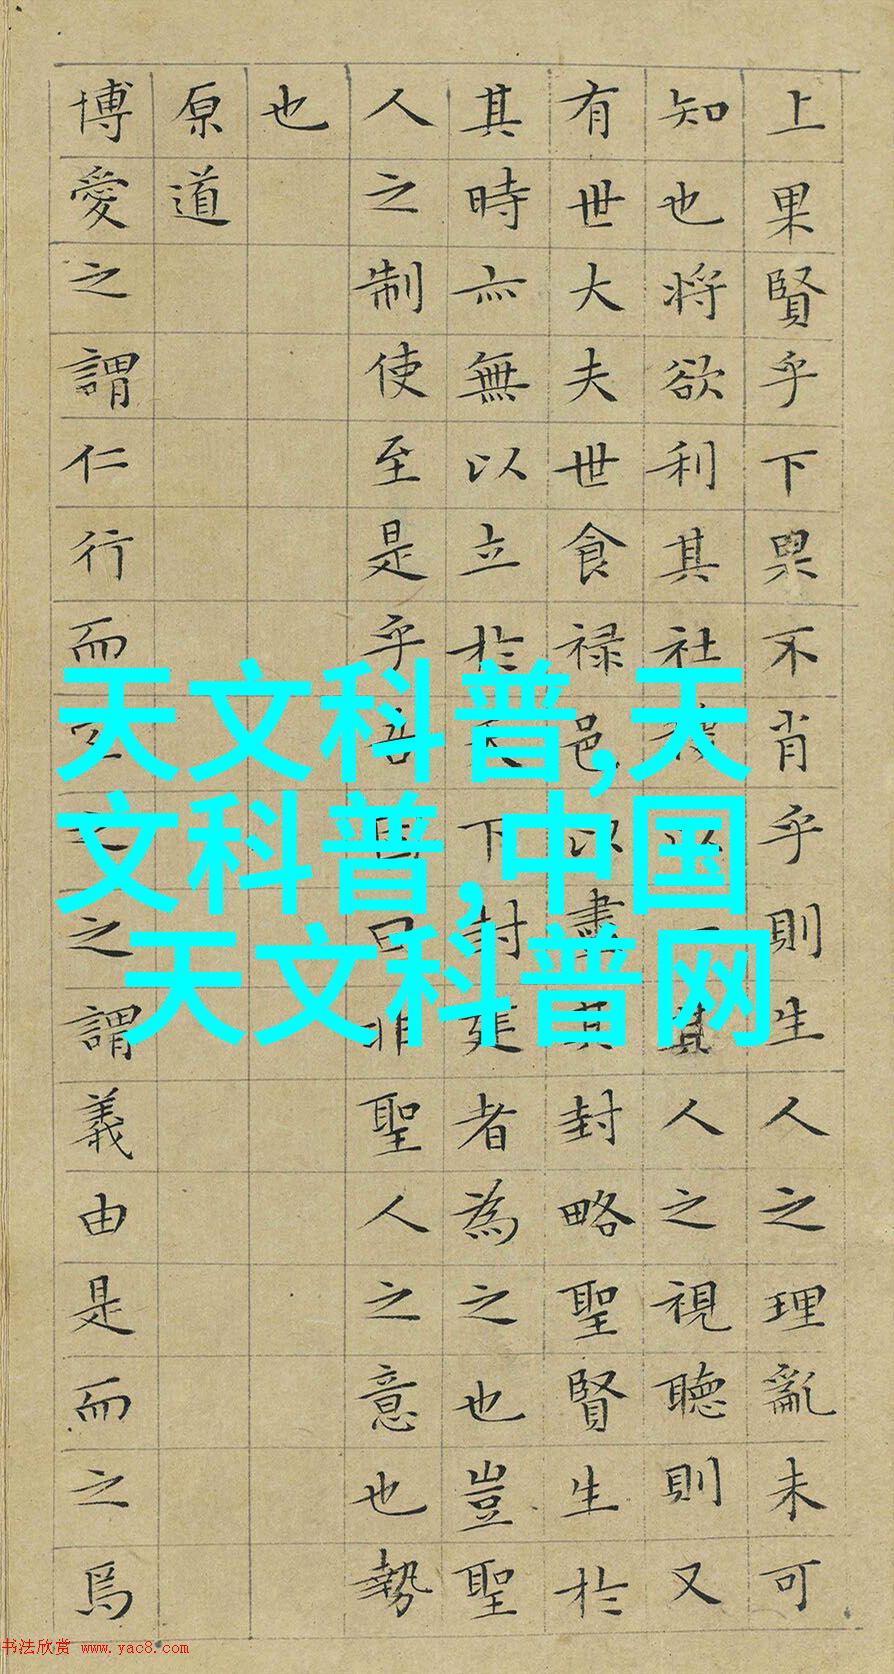 上果賢乎下果不肖乎則生人之理亂未可
知也将欲利其社以其人之視聴則又
有世大夫世食禄邑以盡其封略聖賢生於
其時亦無以立於下封建者為之也豈聖
人之制使至是乎吾曰非聖人之意也勢
也
原道
博愛之謂仁行而之之謂義由是而之焉
天文科普,天
文科普,中国
天文科普网
书法欣赏 www.yac8.com